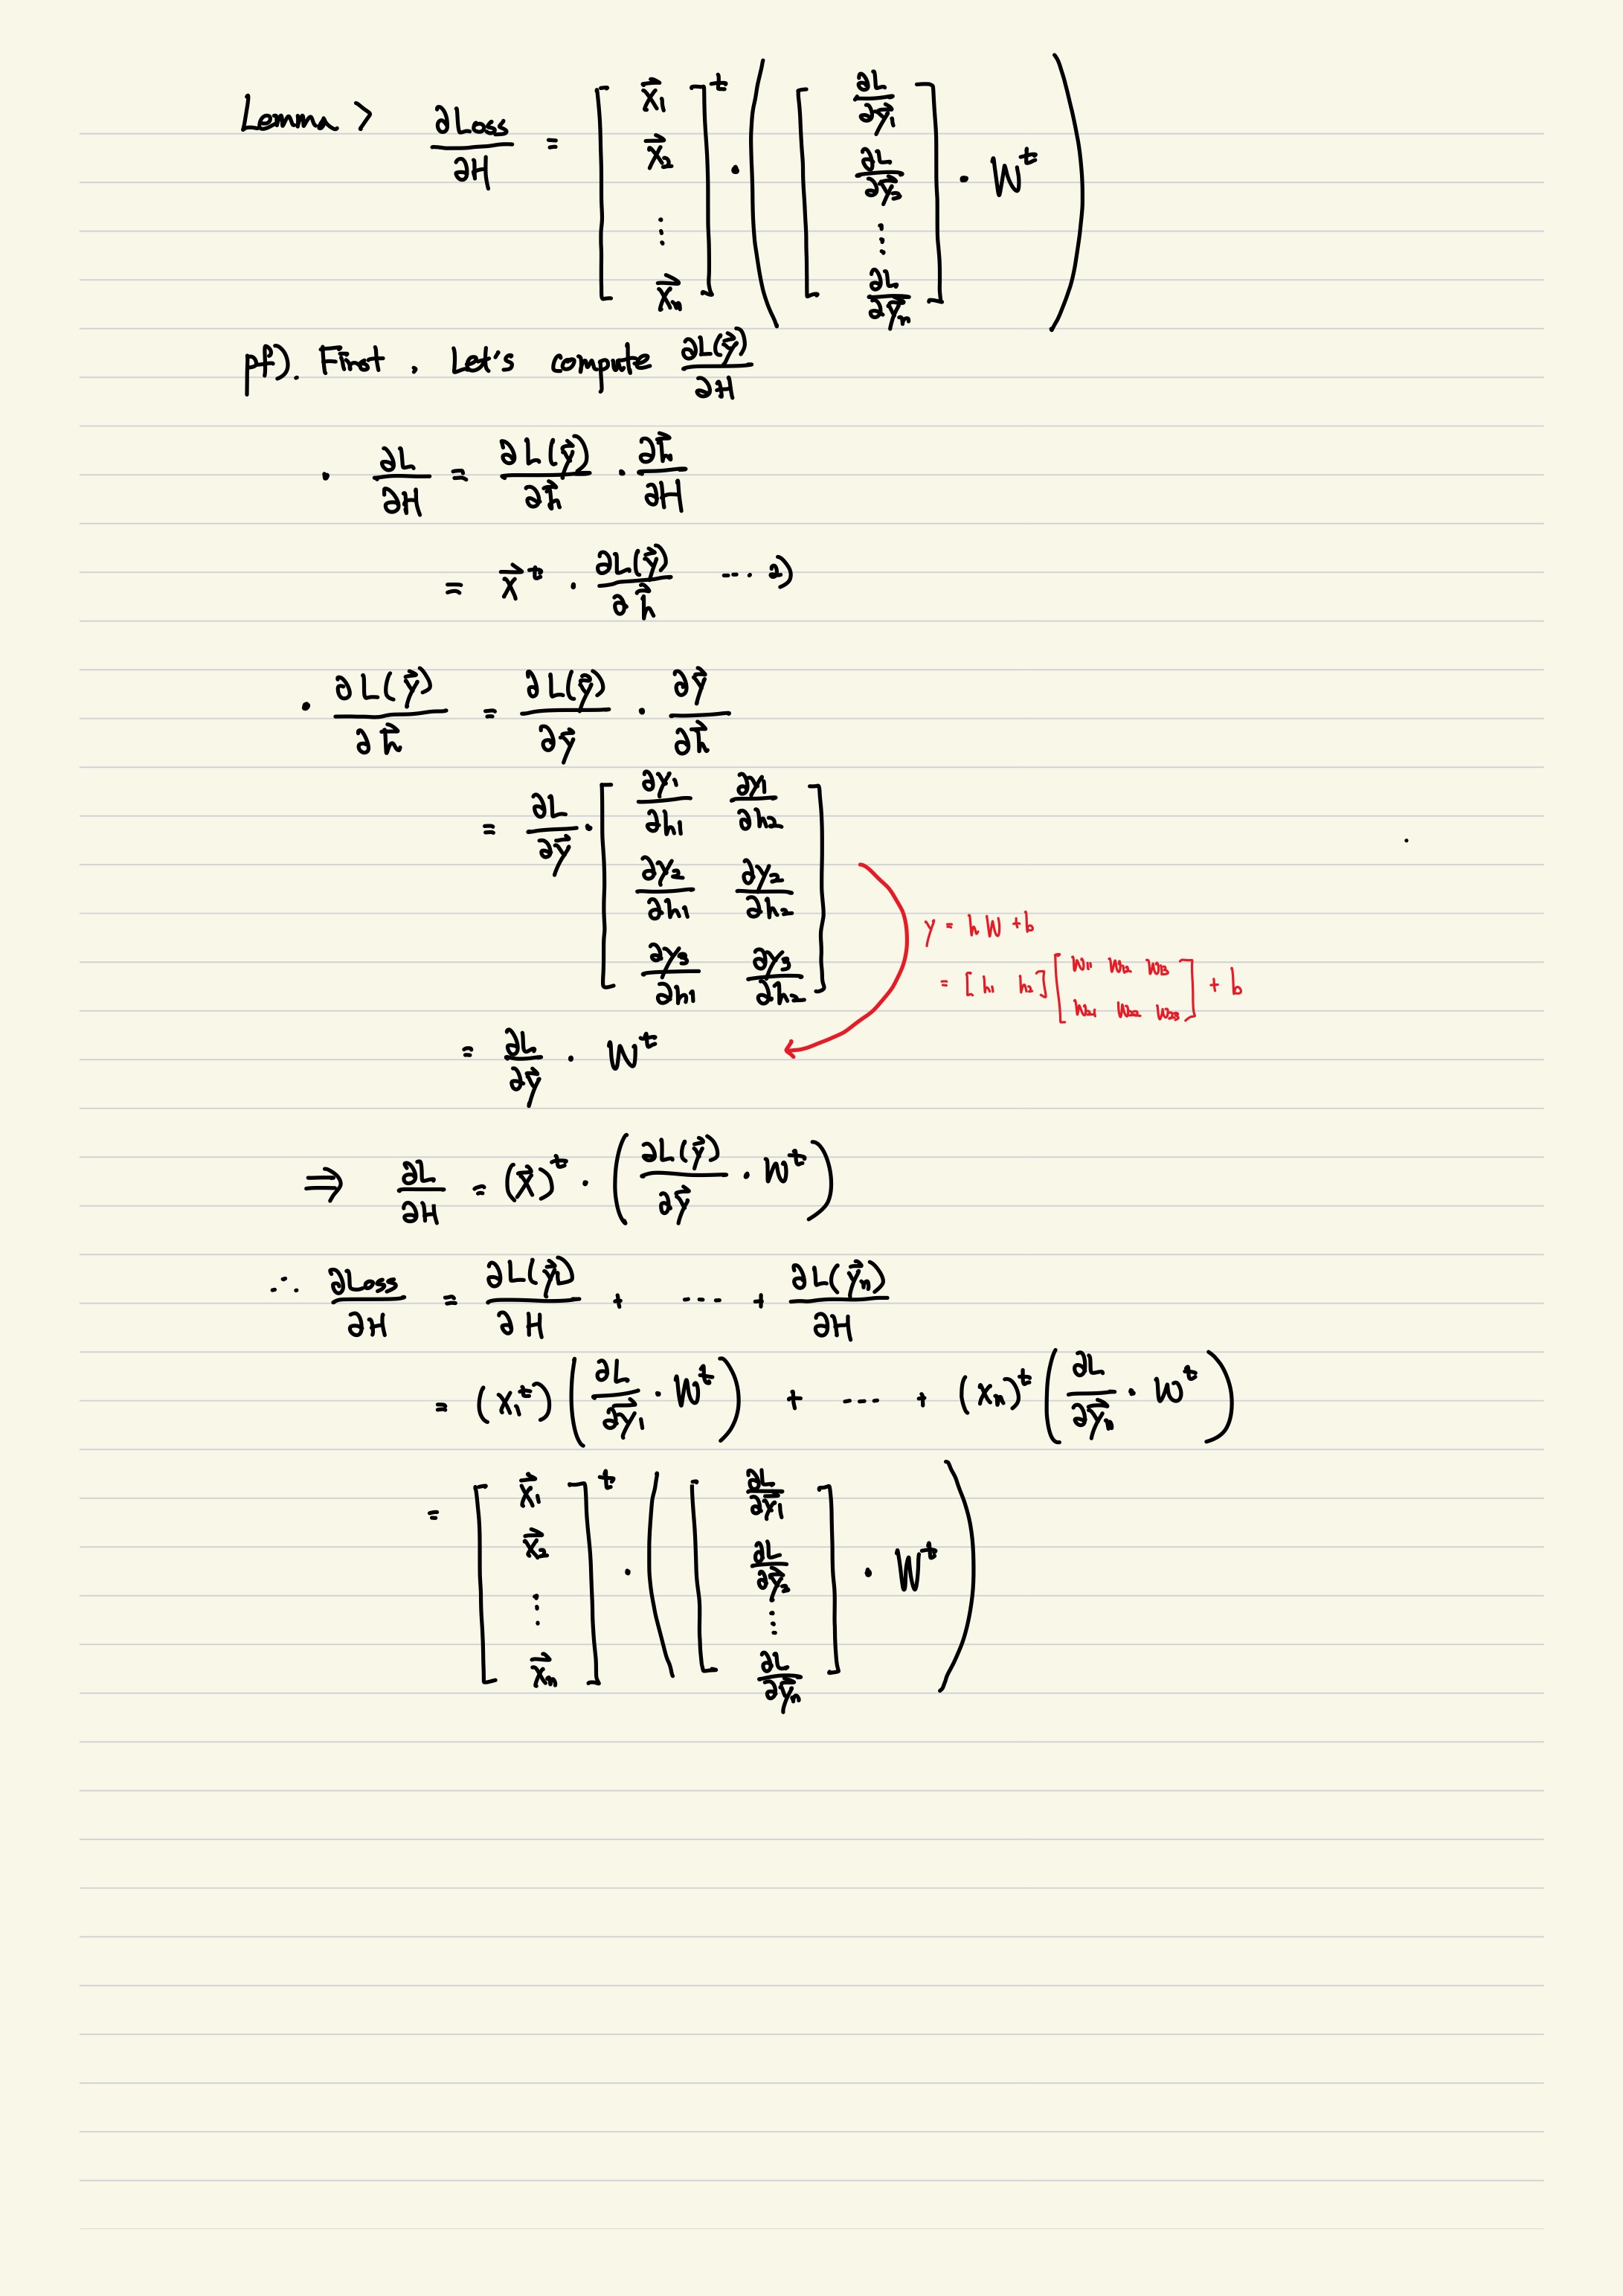 Lemma > ∂Loss/∂H = [ x⃗₁ x⃗₂ ⋮ x⃗ₙ ]ᵗ · ( [ ∂L/∂y⃗₁ ∂L/∂y⃗₂ ⋮ ∂L/∂y⃗ₙ ] · Wᵗ )
pf). First, Let's compute ∂L(y⃗)/∂H
· ∂L/∂H = ∂L(y⃗)/∂h⃗ · ∂h⃗/∂H
= x⃗ᵗ · ∂L(y⃗)/∂h⃗ ···· 2)
· ∂L(y⃗)/∂h⃗ = ∂L(y⃗)/∂y⃗ · ∂y⃗/∂h⃗
= ∂L/∂y⃗ · [ ∂y₁/∂h₁ ∂y₁/∂h₂
∂y₂/∂h₁ ∂y₂/∂h₂
∂y₃/∂h₁ ∂y₃/∂h₂ ]
y = hW + b
= [ h₁ h₂ ] [ W₁₁ W₁₂ W₁₃
W₂₁ W₂₂ W₂₃ ] + b
= ∂L/∂y⃗ · Wᵗ
⇒ ∂L/∂H = (x⃗)ᵗ · ( ∂L(y⃗)/∂y⃗ · Wᵗ )
∴ ∂Loss/∂H = ∂L(y⃗₁)/∂H + ···· + ∂L(y⃗ₙ)/∂H
= (x₁ᵗ) ( ∂L/∂y⃗₁ · Wᵗ ) + ···· + (xₙ)ᵗ ( ∂L/∂y⃗ₙ · Wᵗ )
= [ x⃗₁ x⃗₂ ⋮ x⃗ₙ ]ᵗ · ( [ ∂L/∂y⃗₁ ∂L/∂y⃗₂ ⋮ ∂L/∂y⃗ₙ ] · Wᵗ )